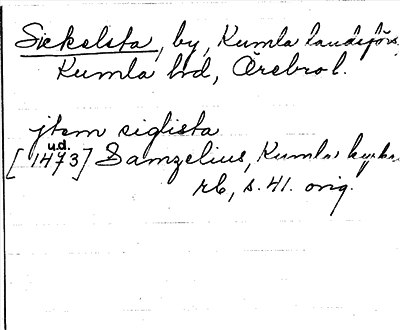 Sickelsta, by, Kumla landsförs.
Kumla hd, Örebro l.
jtem siglista
u.d.
[1473] Samzelius, Kumla kyrkas
rb, s. 41. orig.